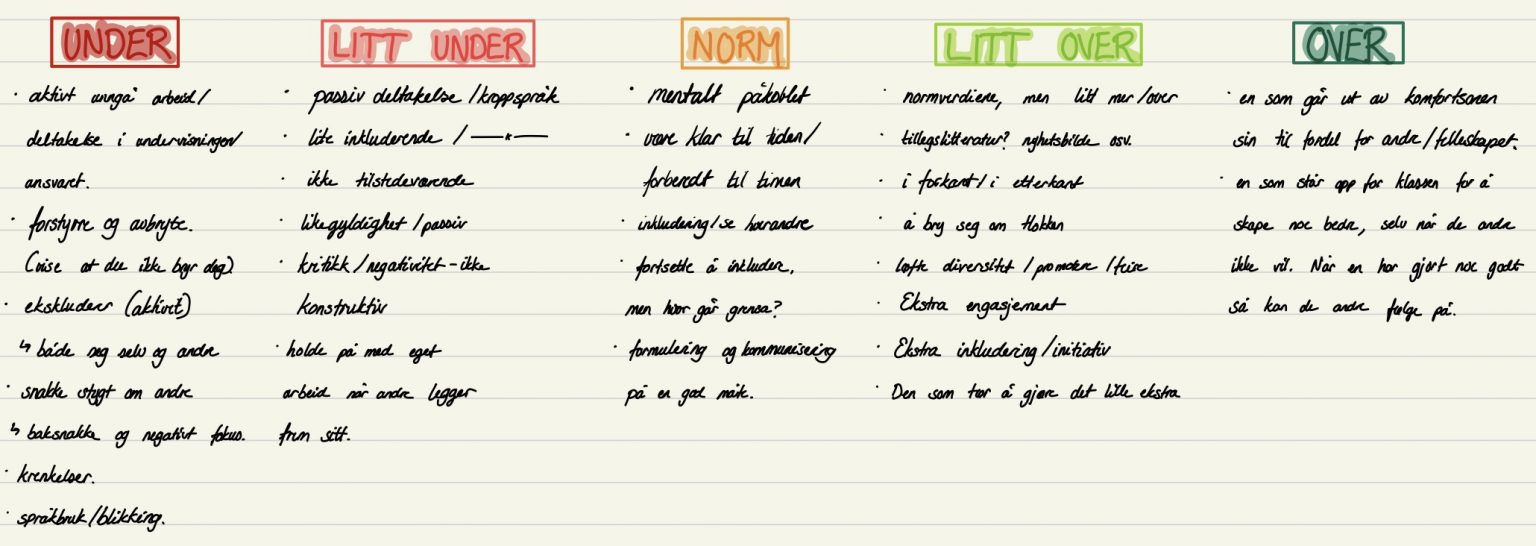 UNDER
· aktivt unngå arbeid/
deltakelse i undervisningen/
ansvaret.
· forstyrre og avbryte.
(vise at du ikke bryr deg)
· ekskluderer (aktivt)
↳ både seg selv og andre
· snakke stygt om andre
↳ baksnakke og negativt fokus.
· krenkelser.
· språkbruk/blikking.
LITT UNDER
· passiv deltakelse /kroppspråk
· lite inkluderende / —〃—
· ikke tilstedeværende
· likegyldighet /passiv
· kritikk /negativitet - ikke
konstruktiv
· holde på med eget
arbeid når andre legger
frem sitt.
NORM
· mentalt påkoblet
· være klar til tiden/
forberedt til timen
· inkludering/se hverandre
· fortsette å inkludere,
men hvor går grensa?
· formulering og kommunisering
på en god måte.
LITT OVER
· normverdiene, men litt mer/over
· tilleggslitteratur? nyhetsbilde osv.
· i forkant/i etterkant
· å bry seg om flokken
· løfte diversitet /promotere /feire
· Ekstra engasjement
· Ekstra inkludering/initiativ
· Den som tør å gjøre det lille ekstra
OVER
· en som går ut av komfortsonen
sin til fordel for andre/felleskapet.
· en som står opp for klassen for å
skape noe bedre, selv når de andre
ikke vil. Når en har gjort noe godt
så kan de andre følge på.